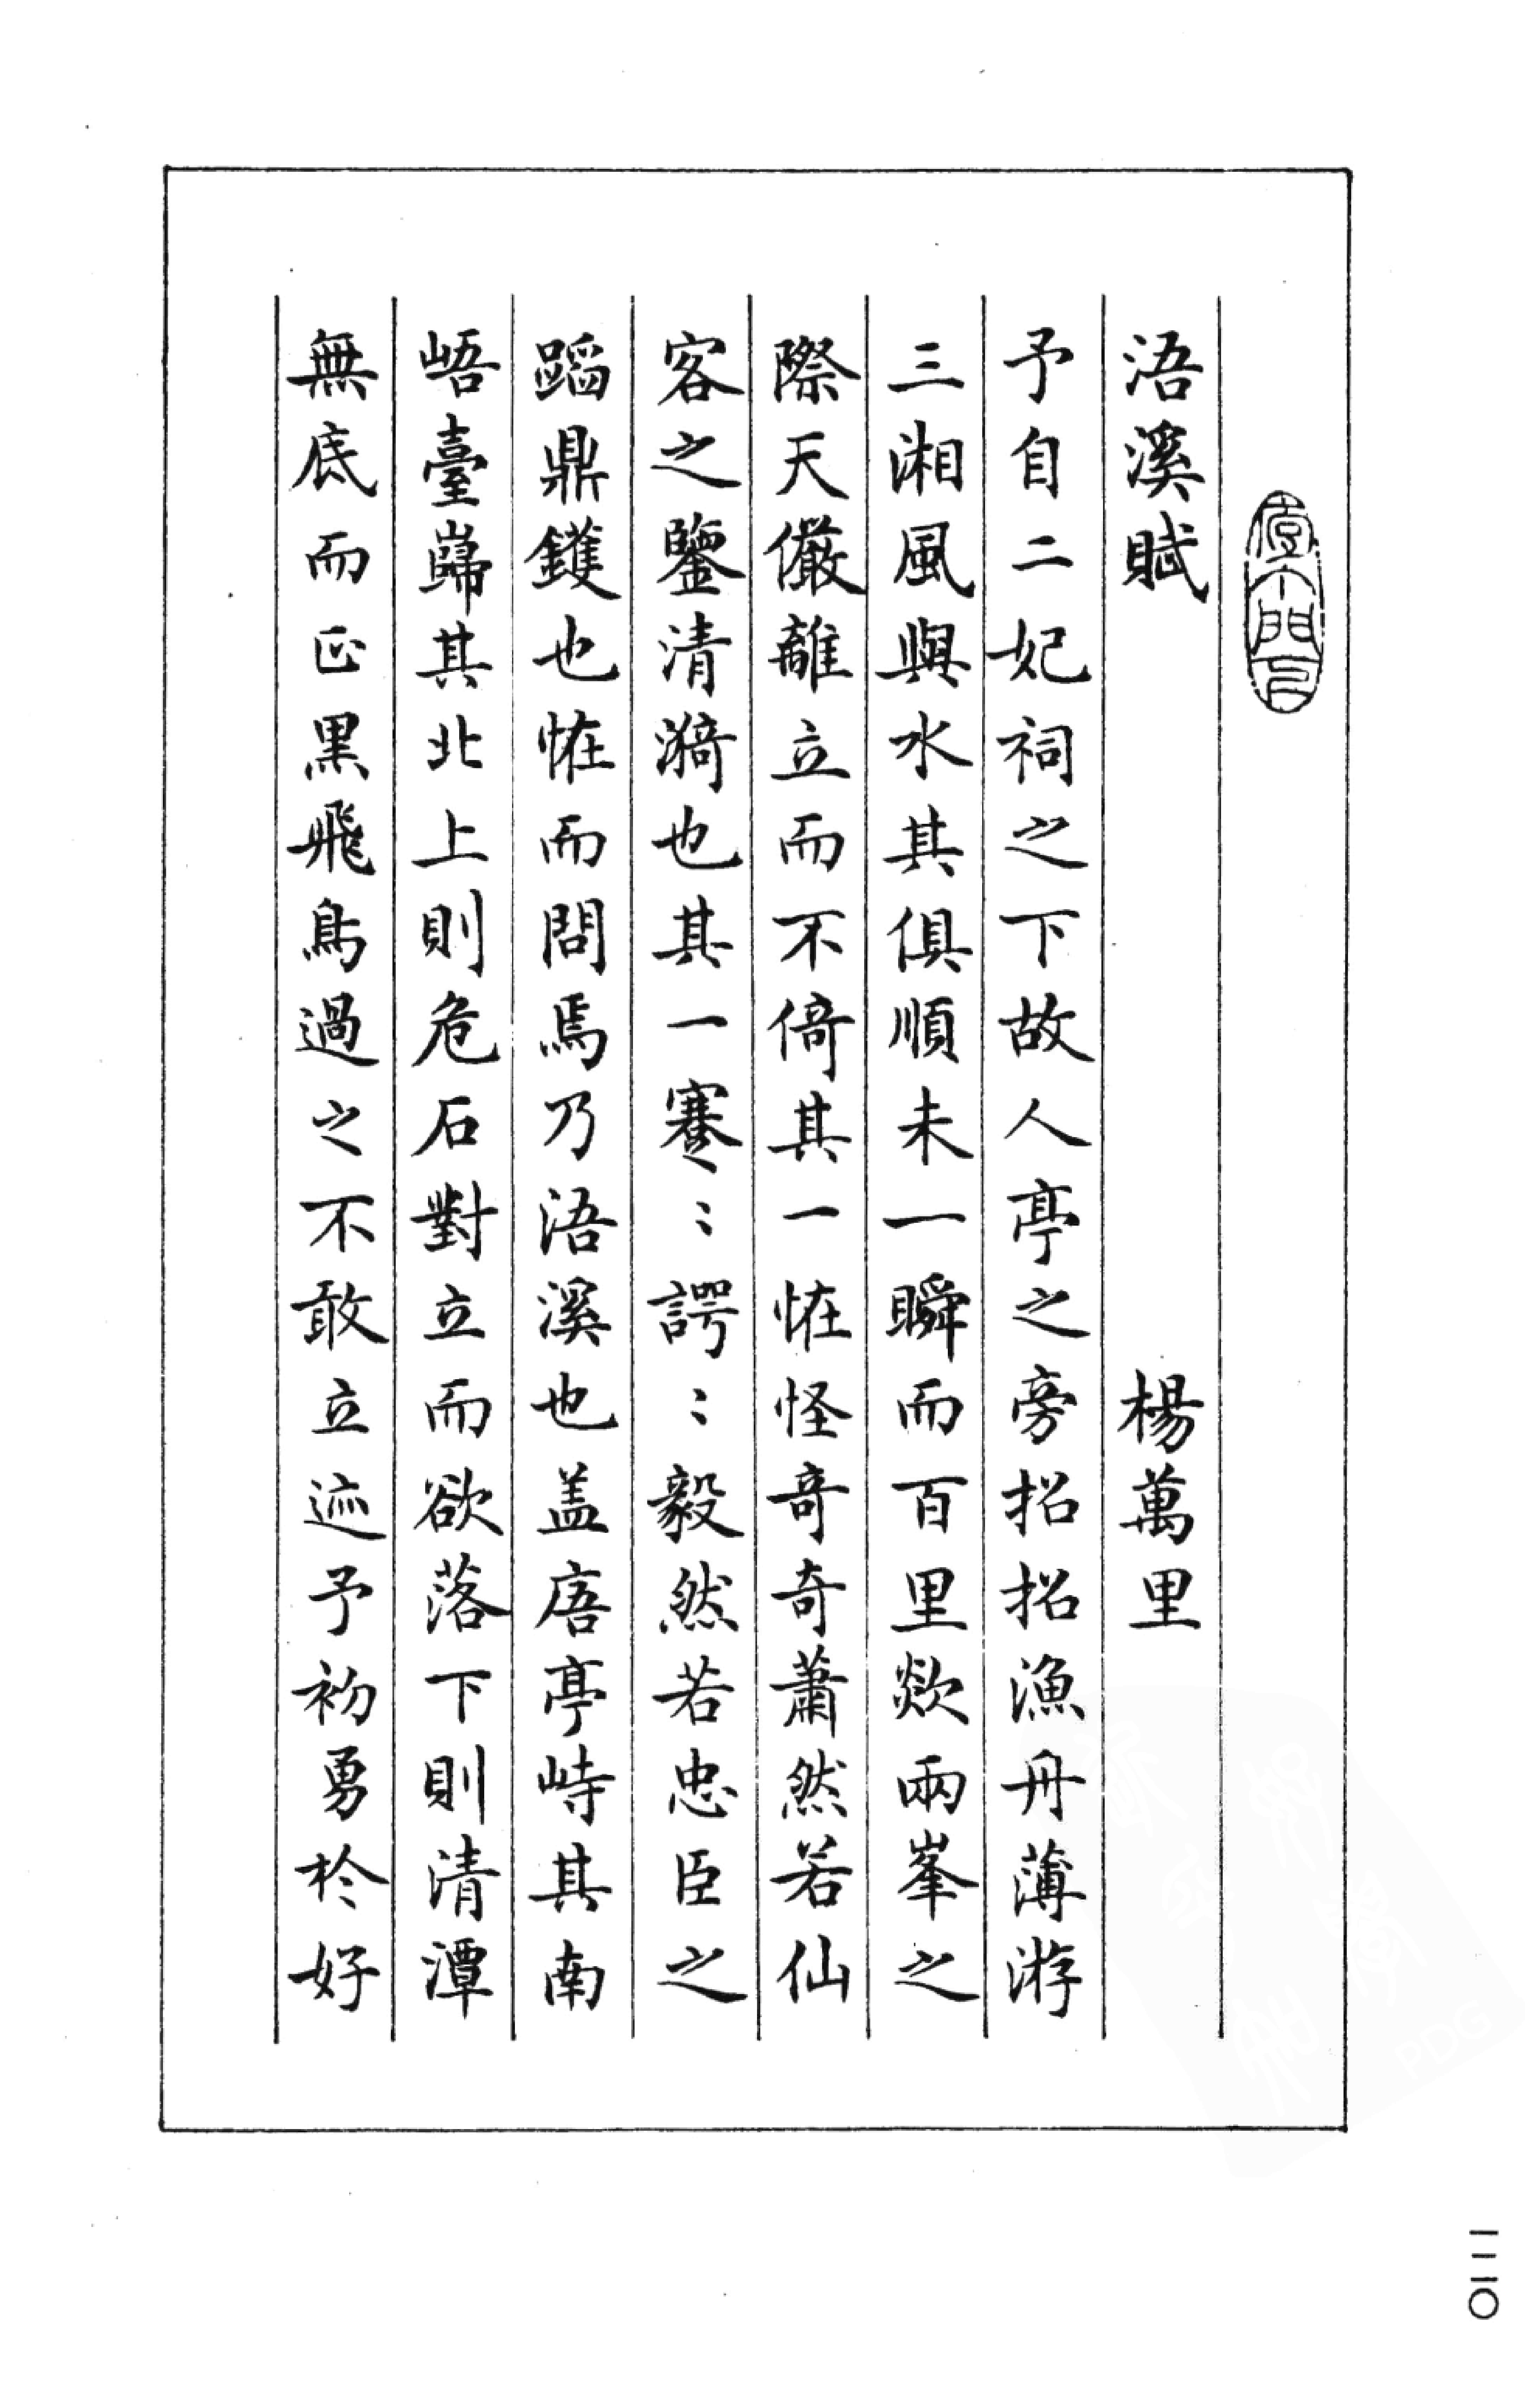 浯溪賦 楊萬里
予自二妃祠之下故人亭之旁招招漁舟薄游
三湘風與水其俱順未一瞬而百里歘兩峯之
際天儼離立而不倚其一恠怪竒奇蕭然若仙
客之鑒清漪也其一蹇〻諤〻毅然若忠臣之
蹈鼎鑊也恠而問焉乃浯溪也盖𢈪亭峙其南
峿臺巋其北上則危石對立而欲落下則清潭
無底而正黑飛鳥過之不敢立迹予初勇於好
一二〇
PDG